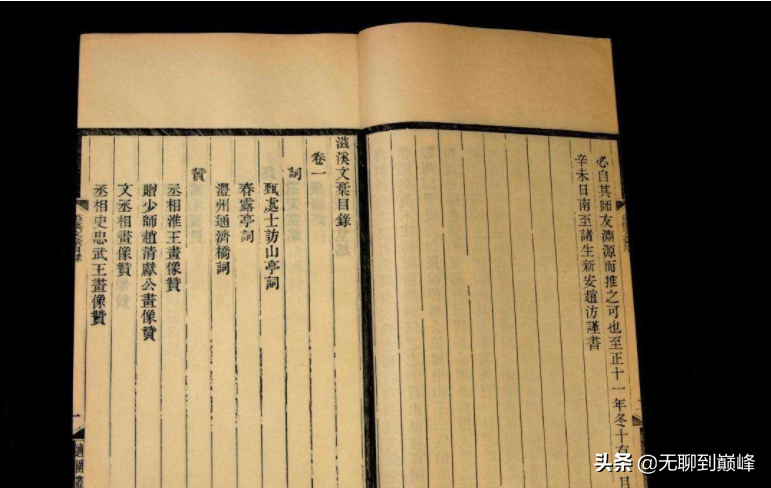 必自其師友淵源而推之可也至正十一年冬十有
辛未日南至諸生新安趙汸謹書
滋溪文稾目錄
卷一
詞
甄處士訪山亭詞
春露亭詞
澧州通濟橋詞
贊
丞相淮王畫像贊
贈少師趙清獻公畫像贊
文丞相畫像贊
丞相史忠武王畫像贊
一
適園叢
头条 @无聊到巅峰